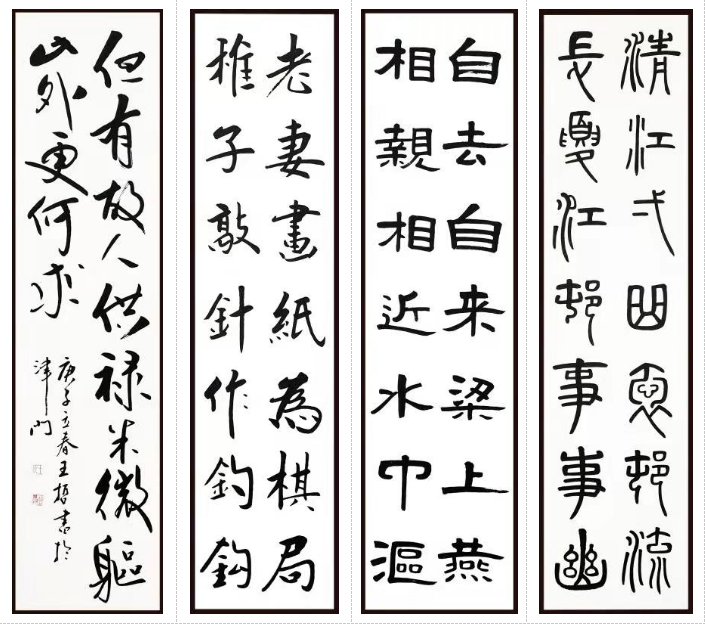 清江弌曲抱邨流
長夏江邨事事幽
自去自来梁上燕
相親相近水中漚
老妻畫紙為棋局
稚子敲針作釣鈎
但有故人供禄米微軀
此外更何求
庚子立春王書於
津門